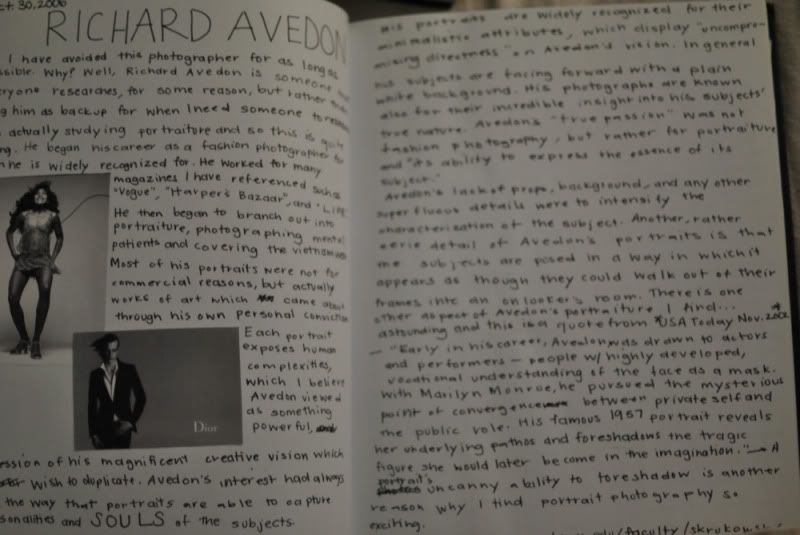 ct. 30, 2006
RICHARD AVEDON
I have avoided this photographer for as long as
ssible. Why? Well, Richard Avedon is someone that
eryone researches, for some reason, but rather
g him as backup for when I need someone to
actually studying portraiture and so this is quite
ng. He began his career as a fashion photographer
he is widely recognized for. He worked for many
magazines I have referenced such as
"Vogue", "Harper's Bazaar", and "LIFE"
He then began to branch out into
portraiture, photographing mental
patients and covering the vietnam
Most of his portraits were not for
commercial reasons, but actually
works of art which came about
through his own personal conviction
Each portrait
exposes human
complexities,
which I believe
Avedon viewed
as something
powerful, and
Dior
ession of his magnificent creative vision which
wish to duplicate. Avedon's interest had always
the way that portraits are able to capture
sonalities and SOULS of the subjects.
His portraits are widely recognized for their
minimalistic attributes, which display "uncompro-
mising directness" on Avedon's vision. In general
his subjects are facing forward with a plain
white background. His photographs are known
also for their incredible insight into his subjects'
true nature. Avedon's "true passion" was not
fashion photography, but rather for portraiture
and "its ability to express the essence of its
subject."
Avedon's lack of props, background, and any other
superfluous details were to intensify the
characterization of the subject. Another, rather
eerie detail of Avedon's portraits is that
the subjects are posed in a way in which it
appears as though they could walk out of their
frames into an onlooker's room. There is one
other aspect of Avedon's portraiture I find...
astounding and this is a quote from USA Today Nov. 2002
— "Early in his career, Avedon was drawn to actors
and performers — people w/ highly developed,
vocational understanding of the face as a mask.
With Marilyn Monroe, he pursued the mysterious
point of convergence between private self and
the public role. His famous 1957 portrait reveals
her underlying pathos and foreshadows the tragic
figure she would later become in the imagination." — A
portrait's
uncanny ability to foreshadow is another
reason why I find portrait photography so
exciting.
.edu/faculty/skrukow